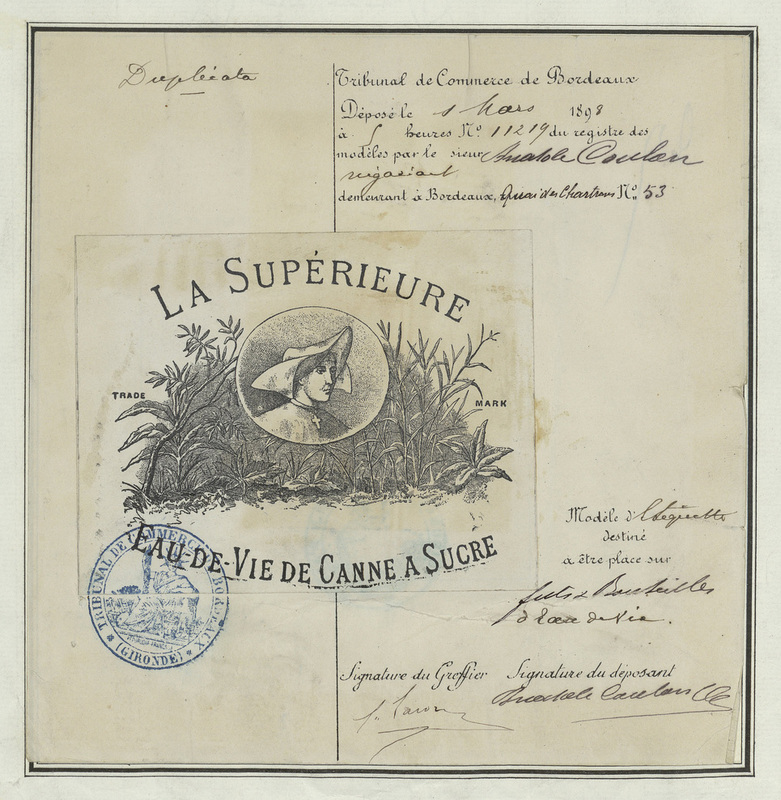 Duplicata
Tribunal de Commerce de Bordeaux
Déposé le 1 Mars 1898
à 5 heures No. 11219 du registre des
modèles par le sieur Anatole Coulon
négociant
demeurant à Bordeaux, Quai des Chartrons No. 53
LA SUPÉRIEURE
TRADE MARK
EAU-DE-VIE DE CANNE A SUCRE
TRIBUNAL DE COMMERCE BORDEAUX
(GIRONDE)
Modèle d'Etiquette
destiné
à être place sur
futs & Bouteilles
d'Eau de Vie.
Signature du Greffier Signature du déposant
Anatole Coulon